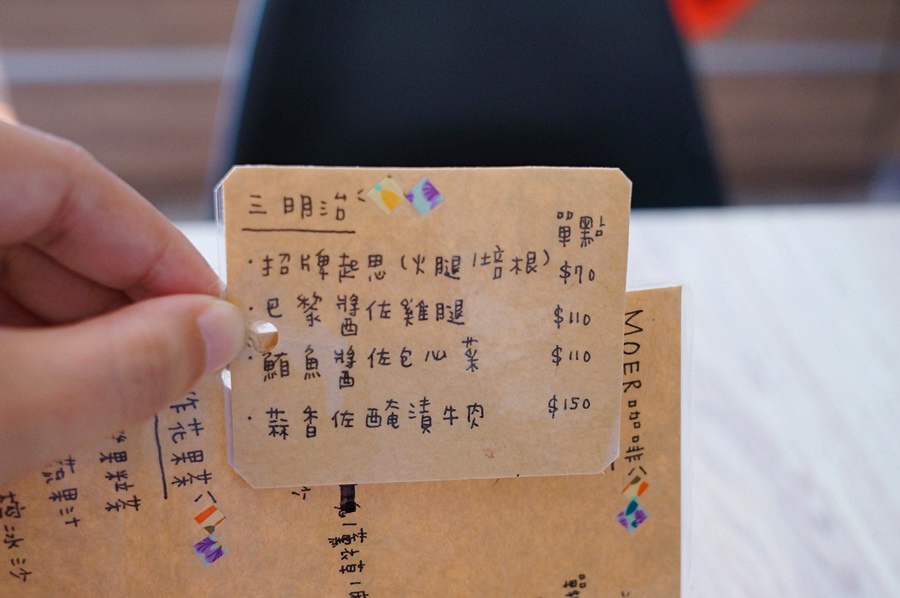 三明治
單點
·招牌起思(火腿/培根) $70
·巴黎醬佐雞腿 $110
·鮪魚醬佐包心菜 $110
·蒜香佐醃漬牛肉 $150
MOER咖啡
花果茶
果粒茶
果汁
冰沙